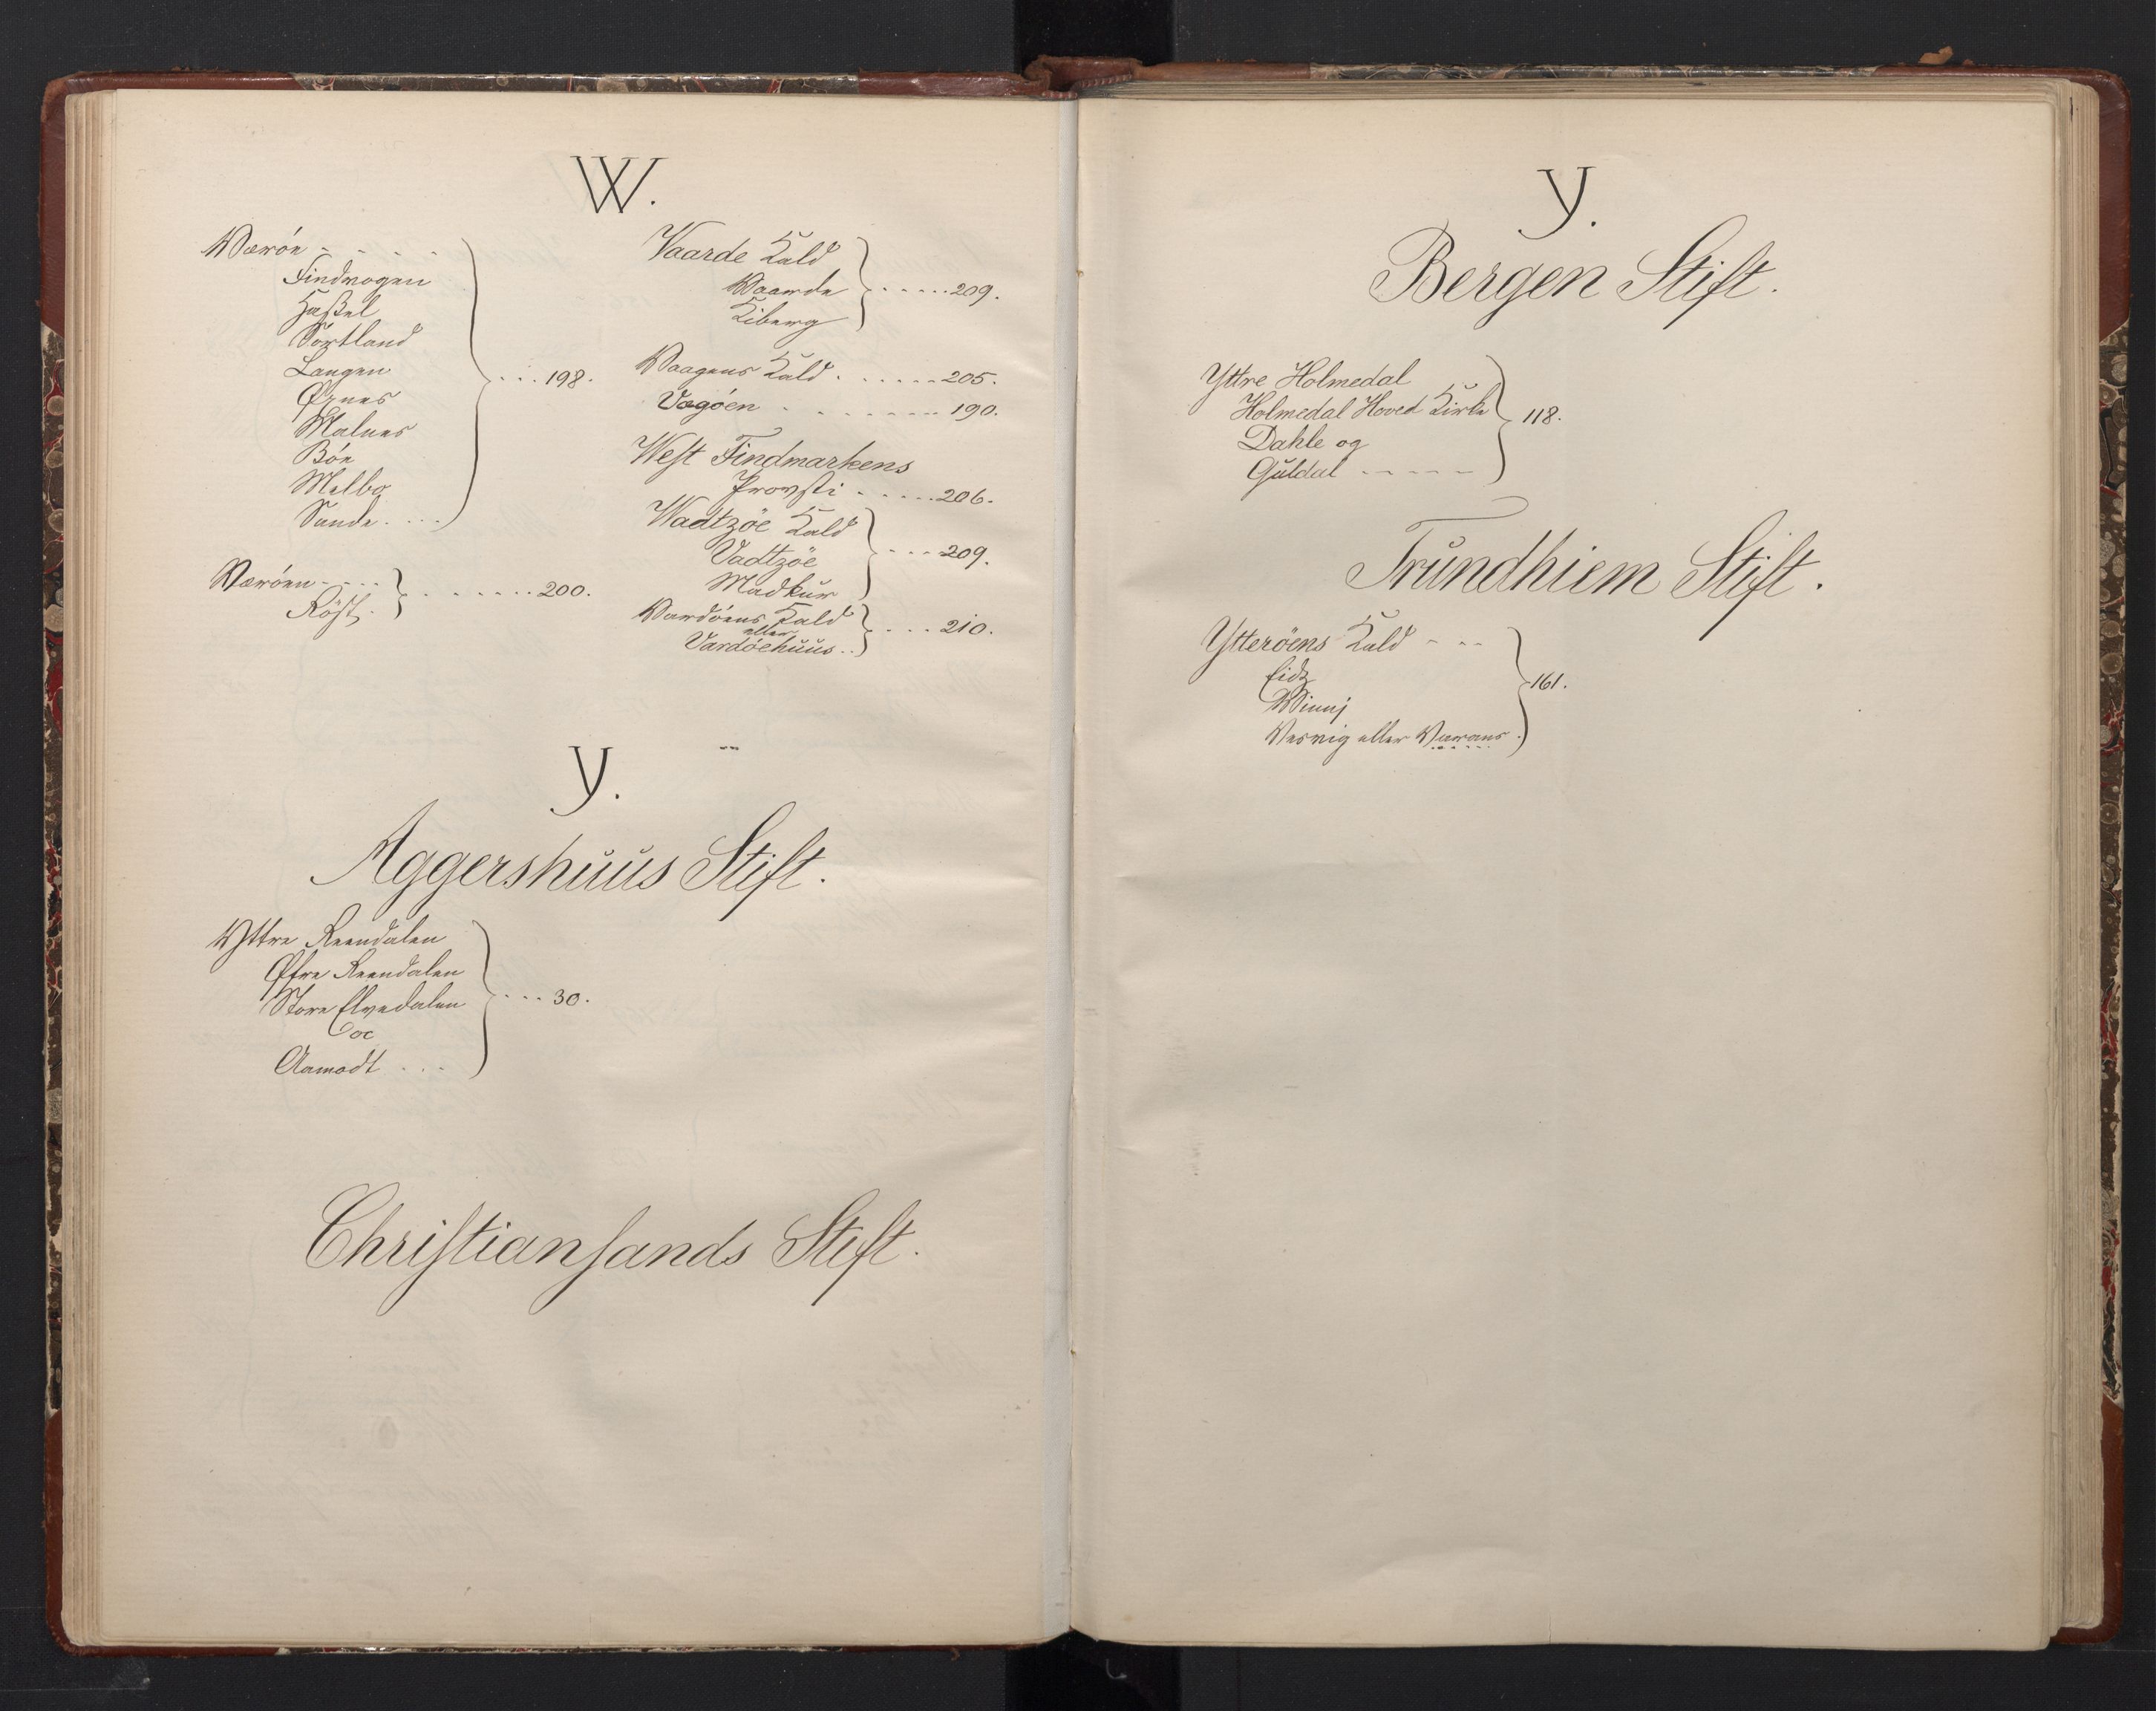 W.
Werøe
Findvogen
Haßel
Sortland
Langen
Øxnes
Malnes
Bøe
Melbo
Sunde
198.
Werøen
Röst
200.
Vaarde Kald
Waarde
Kiberg
209.
Waagens Kald 205.
Vegöen 190.
West Findmarkens
Provsti 206.
Wadtzöe Kald
Vadtzöe
Madkur
209.
Wardøens Kald
eller
Vardöehuus
210.
Y.
Aggershuus Stift.
Yttre Reendalen
Øfre Reendalen
Store Elvedalen
oc
Aamodt
30.
Christiansands Stift.
Y.
Bergen Stift.
Yttre Holmedal
Holmedal Hoved Kirke
Dahle og
Guldal
118.
Trundhiem Stift.
Ytteröens Kald
Eidz
Winnj
Vesvig eller Warans
161.